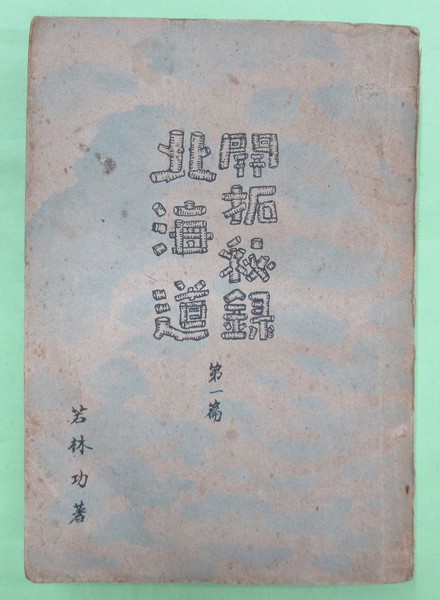 開拓秘録
北海道
第一篇
若林功著